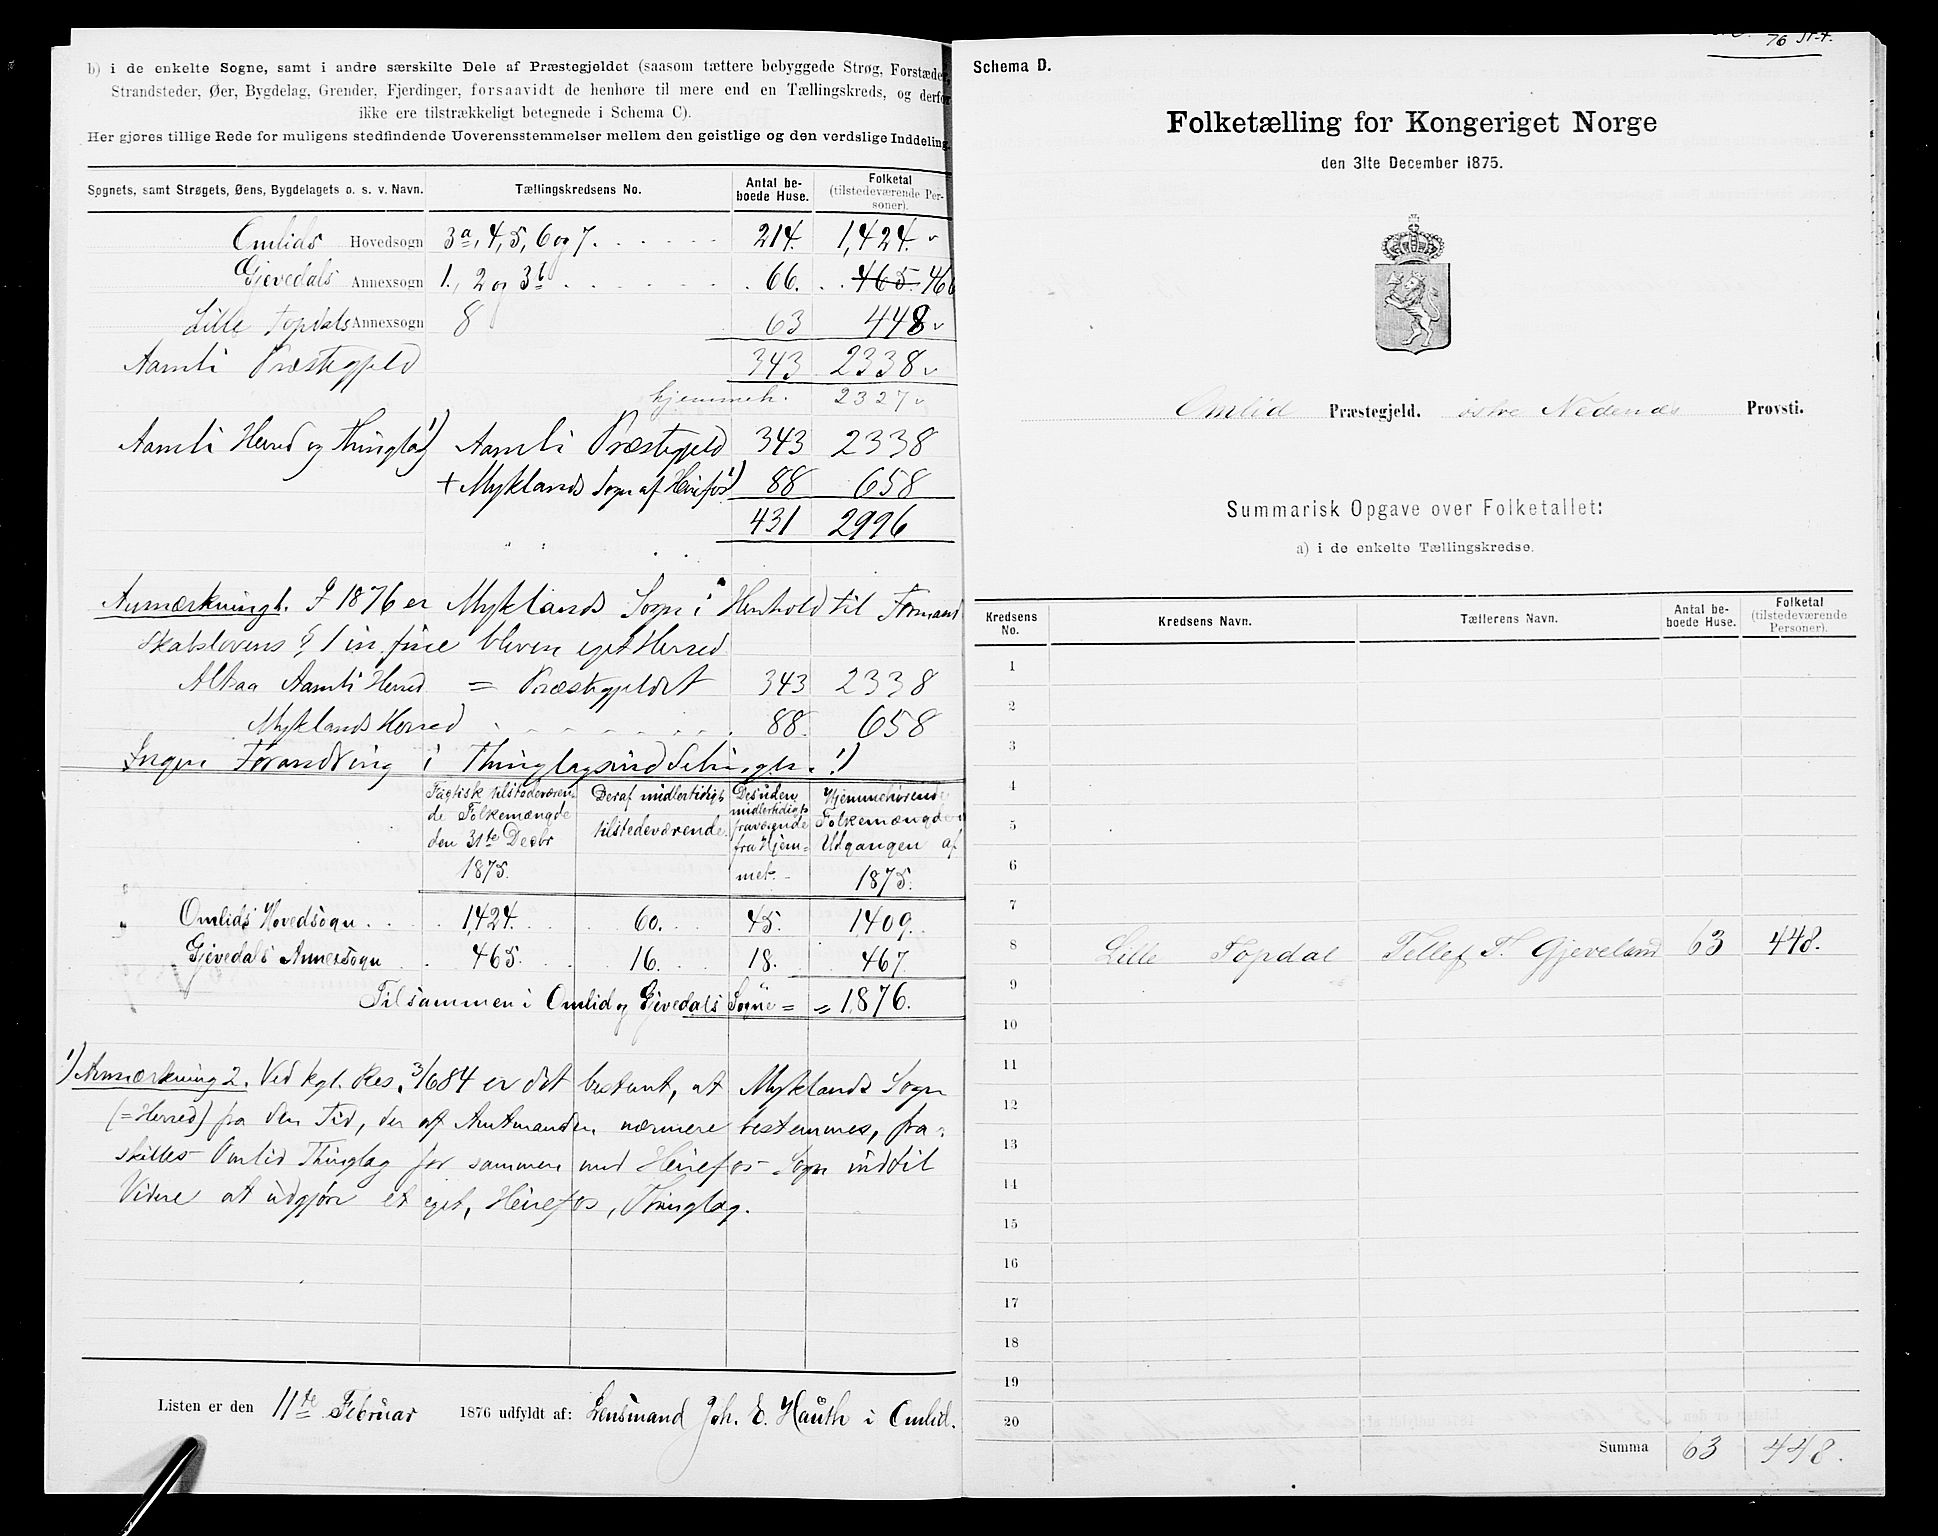 b) i de enkelte Sogne, samt i andre særskilte Dele af Præstegjeldet (saasom tættere bebyggede Strøg, Forstæder,
Strandsteder, Øer, Bygdelag, Grender, Fjerdinger, forsaavidt de henhøre til mere end en Tællingskreds, og derfor
ikke ere tilstrækkeligt betegnede i Schema C).
Her gjøres tillige Rede for muligens stedfindende Uoverensstemmelser mellem den geistlige og den verdslige Inddeling.
Sognets, samt Strøgets, Øens, Bygdelagets o. s. v. Navn. Tællingskredsens No. Antal beboede Huse. Folketal (tilstedeværende Personer).
Omlids Hovedsogn 3a, 4, 5, 6 og 7. 214. 1,424.
Gjevedals Annexsogn 1., 2 og 3b 66. 465. 466
Lille Topdals Annexsogn 8 63 448
Aamli Præstegjeld 343 2338
hjemmeh. 2327
Aamli Herred og Thinglag 1) Aamli Præstegjeld 343 2338
+ Myklands Sogn af Herefos 1) 88 658
431 2996
Anmærkning 1. I 1876 er Myklands Sogn i Henhold til Formand
skabslovens § 1 in fine bleven eget Herred
Altsaa Aamli Herred = Præstegjeldet 343 2338
Myklands Herred 88. 658
Ingen Forandring i Thinglagsinddelingen. 1)
Fagtisk tilstedeværende Folkemængde den 31te Decbr 1875. Deraf midlertidigt tilstedeværende. Desuden midlertidigt fraværende fra Hjemmet. Hjemmehørende Folkemængde Udgangen af 1875.
Omlids Hovedsogn 1,424. 60. 45. 1,409.
Gjevedals Annexsogn 465. 16. 18. 467
Tilsammen i Omlid og Gjevedals Sogne = = 1,876.
1) Anmærkning 2. Ved kgl. Res. 3/6 84 er det bestemt, at Myklands Sogn
(= Herred) fra den Tid, der af Amtmanden nærmere bestemmes, fra-
skilles Omlid Thinglag for sammen med Herefos Sogn indtil
Videre at udgjøre et eget, Herefos, Thinglag.
Listen er den 11te Februar 1876 udfyldt af: Lensmand Joh. E. Hauth i Omlid.
76
Schema D.
Folketælling for Kongeriget Norge
den 31te December 1875.
Omlid Præstegjeld. østre Nedenæs Provsti.
Summarisk Opgave over Folketallet:
a) i de enkelte Tællingskredse.
Kredsens No. Kredsens Navn. Tællerens Navn. Antal beboede Huse. Folketal (tilstedeværende Personer).
1
2
3
4
5
6
7
8 Lille Topdal Tellef T. Gjeveland 63 448.
9
10
11
12
13
14
15
16
17
18
19
20
Summa 63 448.